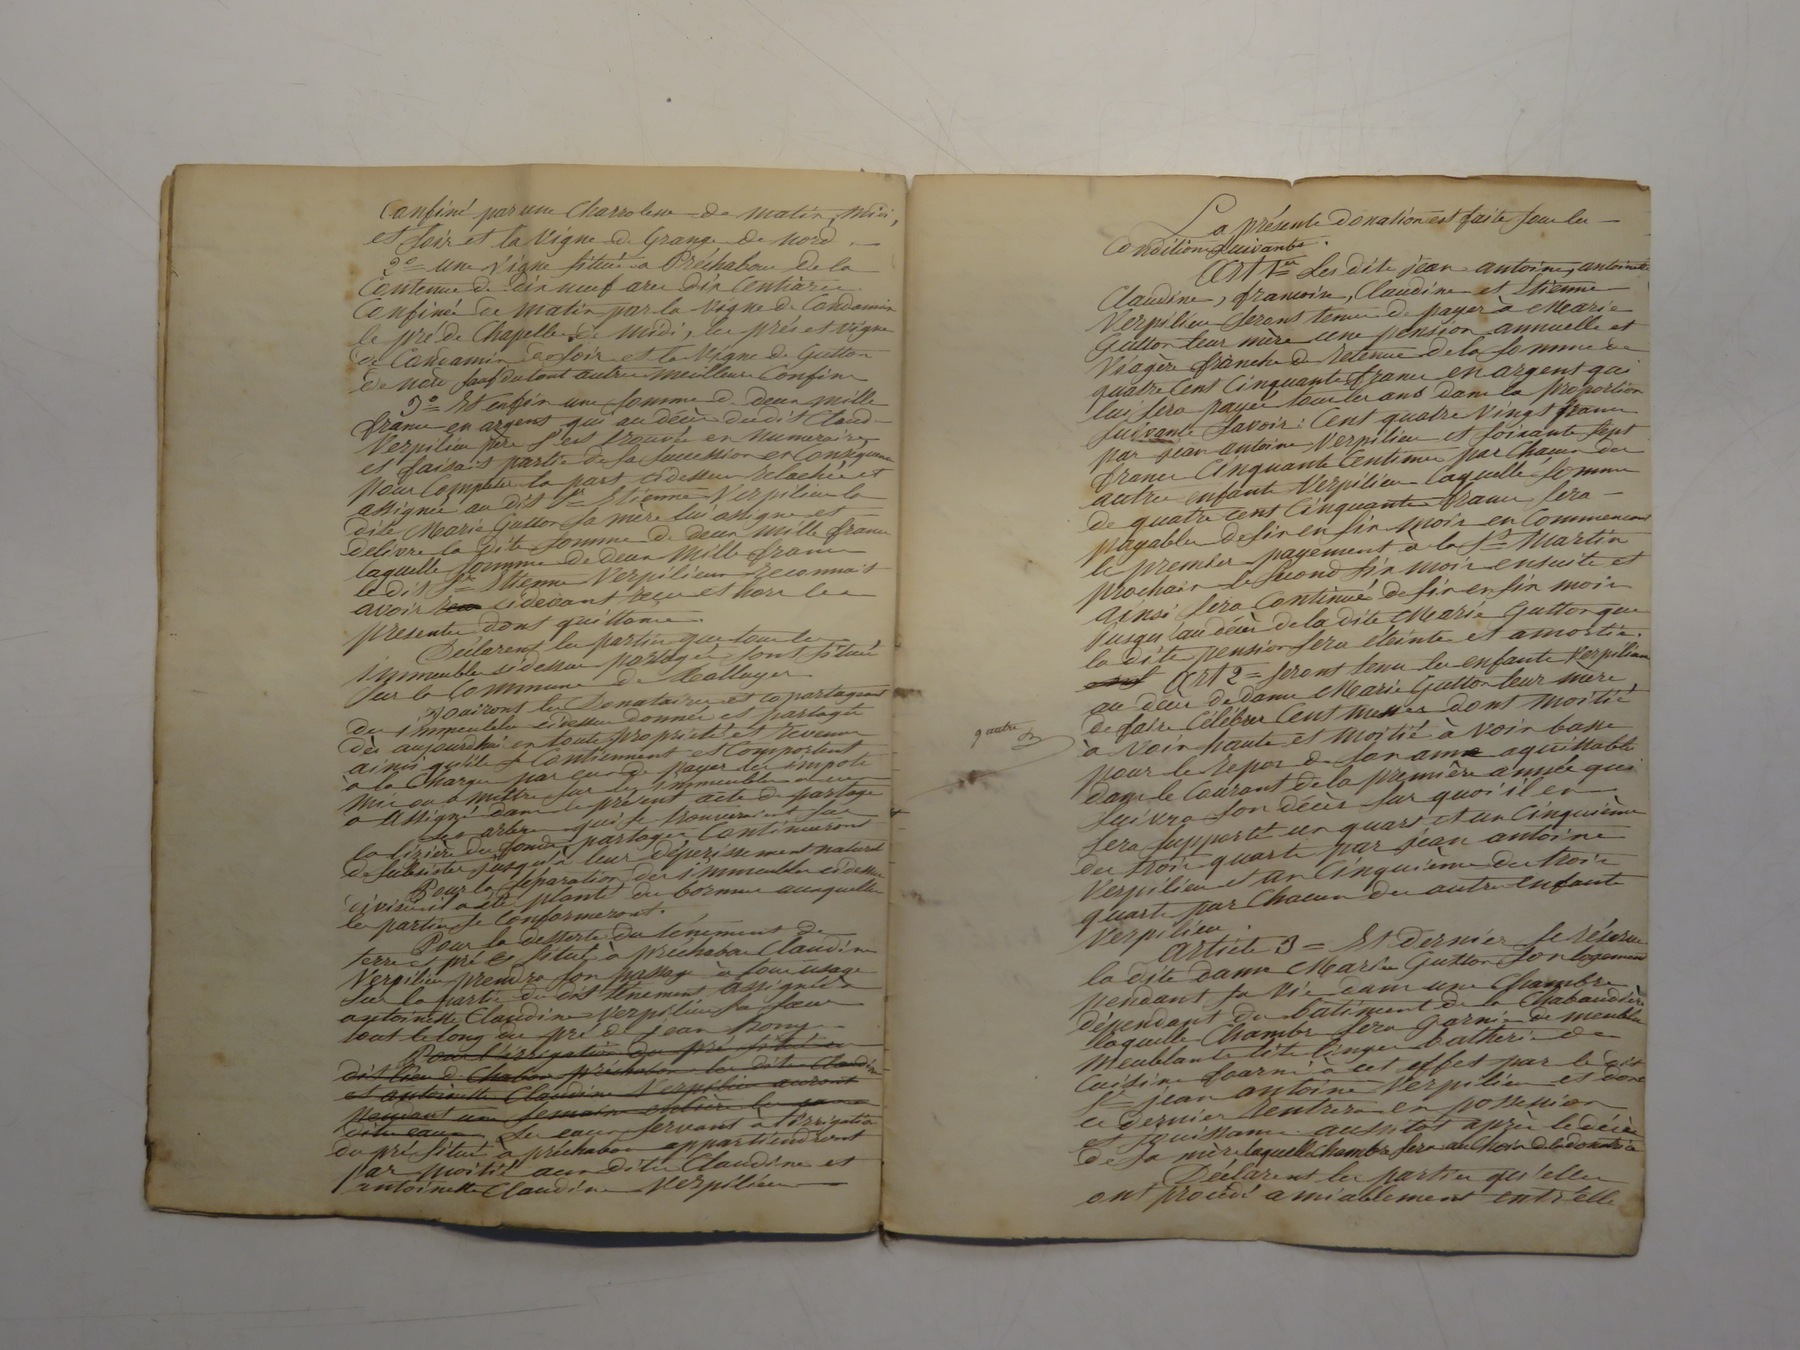 Confiné par une Charroleuse de matin, Midi,
et soir et la Vigne de Grange de nord.
2e une Vigne située à Préchabou de la
Contenue de dix neuf ares dix Centiares
Confinée de Matin par la Vigne de Condamin
le pré de Chapelle de Midi, les prés et Vigne
de Condamin de soir et la Vigne de Gutton
de nord sauf du tout autres meilleurs Confins
3° Et enfin une somme de deux mille
francs en argent qui au décès du dit Claude
Verpilieu père s'est trouvée en numéraire
et faisait partie de sa succession en Conséquence
pour Completer la part cidessus relachée et
assignée au dit Sr Etienne Verpilieu la
dite Marie Gutton sa mère lui assigne et
delivre la dite somme de deux mille francs
laquelle somme de deux Mille francs
le dit Sr Etienne Verpilieu reconnait
avoir reçu cidevant reçue et hors les
presentes dont quittance.
Déclarent les parties que tous les
immeubles cidessus partagés sont situés
sur la Commune de
Jouiront les Donataires et copartageant
des immeubles cidessus donnés et partagés
dès aujourdhui en toute propriété et revenus
ainsi qu'ils se Contiennent et Comportent
à la Charge par eux de payer les impots
mis ou à mettre sur les immeubles à eux
assignés dans le présent acte de partage
Les arbres qui se trouveraient sur
la lizière des fonds partagés Continueront
de subsister jusqu'à leur dépérissement naturel
Pour la séparation des immeubles cidessus
divisés il a été planté des bornes auxquelles
les parties se Conformeront.
Pour la desserte du ténement de
terre et pré situé à préchabou Claudine
Verpilieu prendra son passage à tous usages
sur la partie du dit ténement assignée à
antoinette Claudine Verpilieu sa sœur
tout le long du pré de Jean Bony
Pour l'irrigation du pré situé au
dit lieu de Chabou préchabou les dites Claudine
et antoinette Claudine Verpilieu auront
pendant une semaine entière les
dites eaux Les eaux servant à l'irrigation
du pré situé à préchabou appartiendront
par moitié aux dites Claudine et
antoinette Claudine Verpilieu
La présente donation est faite sous les
Conditions suivantes.
Art 1er Les dits jean antoine, antoinette
Claudine, francoise, Claudine et Etienne
Verpilieu seront tenus de payer à Marie
Gutton leur mère une pension annuelle et
Viagère franche de retenue de la somme de
quatre Cent Cinquante francs en argent qui
lui sera payée tous les ans dans la proportion
suivante Savoir: Cent quatre Vingt francs
par jean antoine Verpilieu et soixante sept
francs Cinquante Centimes par Chacun des
autres enfants Verpilieu laquelle somme
de quatre cent Cinquante francs sera
payable de six en six mois en Commencant
le premier payement à la St Martin
prochain le second six mois ensuite et
ainsi sera Continué de six en six mois
jusqu'au décès de la dite Marie Gutton que
la dite pension sera éteinte et amortie.
Art 2 = seront tenus les enfants Verpilieu
au décès de dame Marie Gutton leur mère
de faire Célébrer Cent messes dont moitié
quatre
à Voix haute et moitié à Voix basse
pour le repos de son ame aquittable
dans le Courant de la première année qui
suivra son décès sur quoi il en
sera supporté un quart et un Cinquième
des trois quarts par jean antoine
Verpilieu et un Cinquième des trois
quarts par Chacun des autres enfants
Verpilieu.
Article 3 = Et dernier se réserve
la dite dame Marie Gutton son logement
pendant sa Vie dans une Chambre
dépendant du batiment de la Chabaudière
laquelle Chambre sera garnie de meubles
meublants lits linges batterie de
Cuisine fournis à cet effet par le dit
Sr jean antoine Verpilieu et dont
ce dernier rentrera en possession
et jouissance aussitot après le décès
de sa mère laquelle Chambre sera au Choix de la donatrice
Déclarent les parties qu'elles
ont procédé amiablement entr'elles